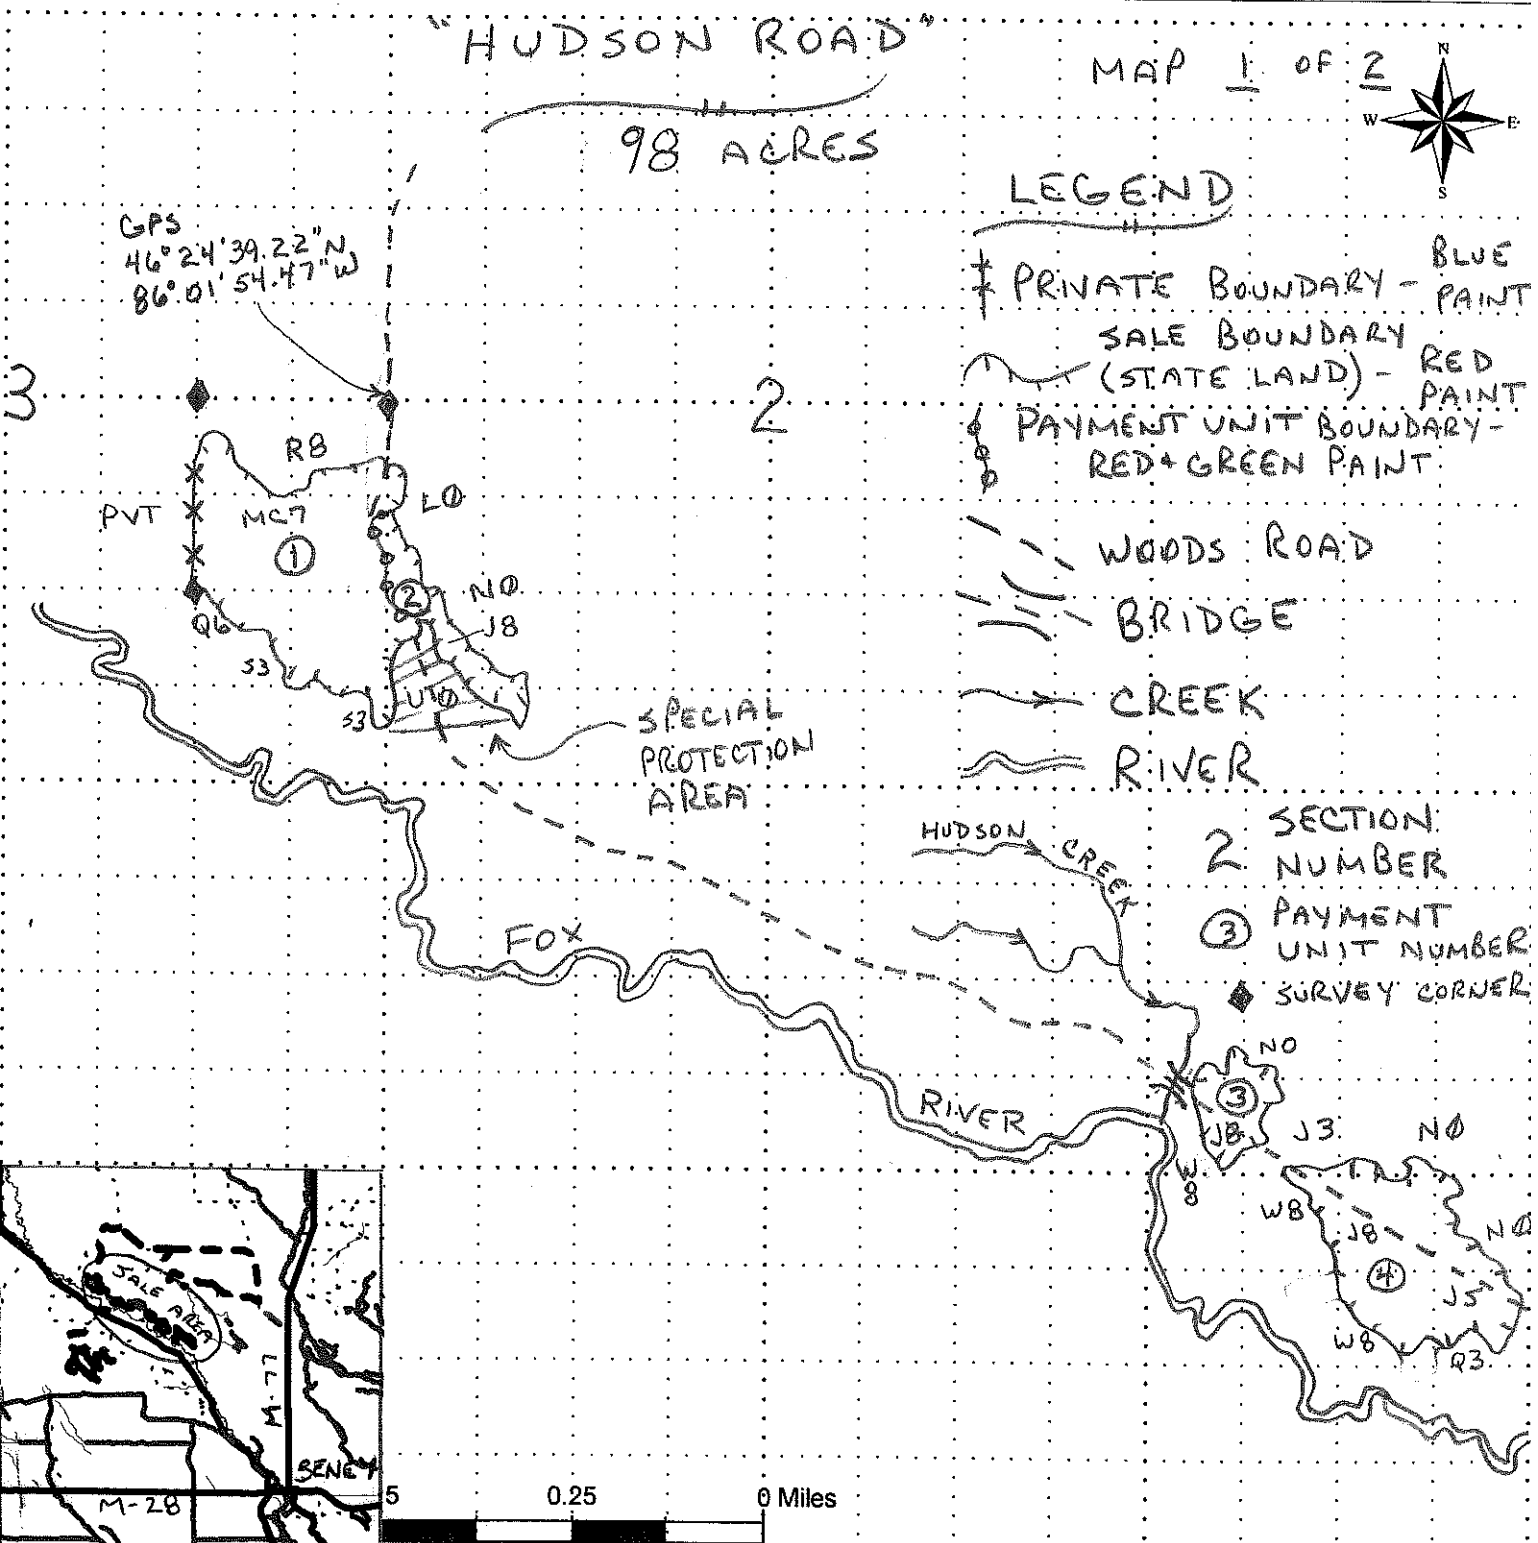 "HUDSON ROAD"
98 ACRES
MAP 1 OF 2
N
W E
S
LEGEND
PRIVATE BOUNDARY - BLUE PAINT
SALE BOUNDARY
(STATE LAND) - RED PAINT
PAYMENT UNIT BOUNDARY -
RED + GREEN PAINT
WOODS ROAD
BRIDGE
CREEK
RIVER
2 SECTION
NUMBER
3 PAYMENT
UNIT NUMBER
SURVEY CORNER
GPS
46°24'39.22"N
86°01'54.47"W
3
2
R8
PVT
MC7
1
LØ
2
NØ
Q6
J8
S3
UØ
S3
SPECIAL
PROTECTION
AREA
HUDSON CREEK
FOX RIVER
NO
3
J8
J3
NØ
W8
W8
J8
NØ
4
J5
W8
Q3
SALE AREA
M-77
SENEY
M-28
5 0.25 0 Miles